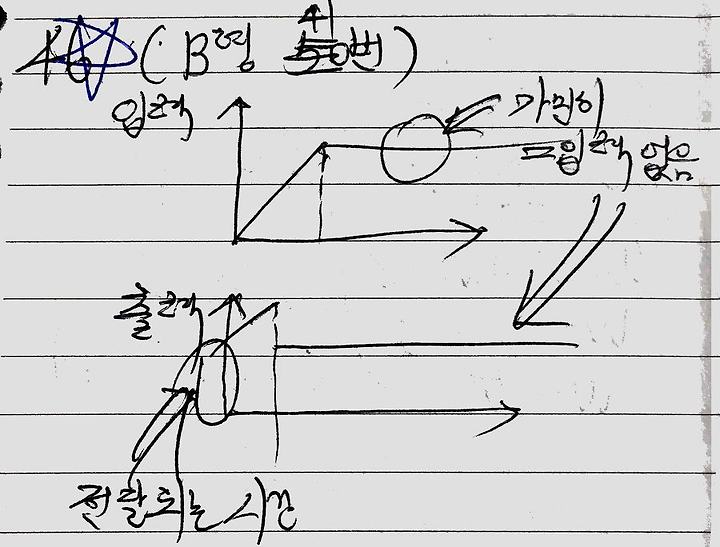 46 (B형 41번)
입력
가만히
입력 없음
출력
전달되는 시간